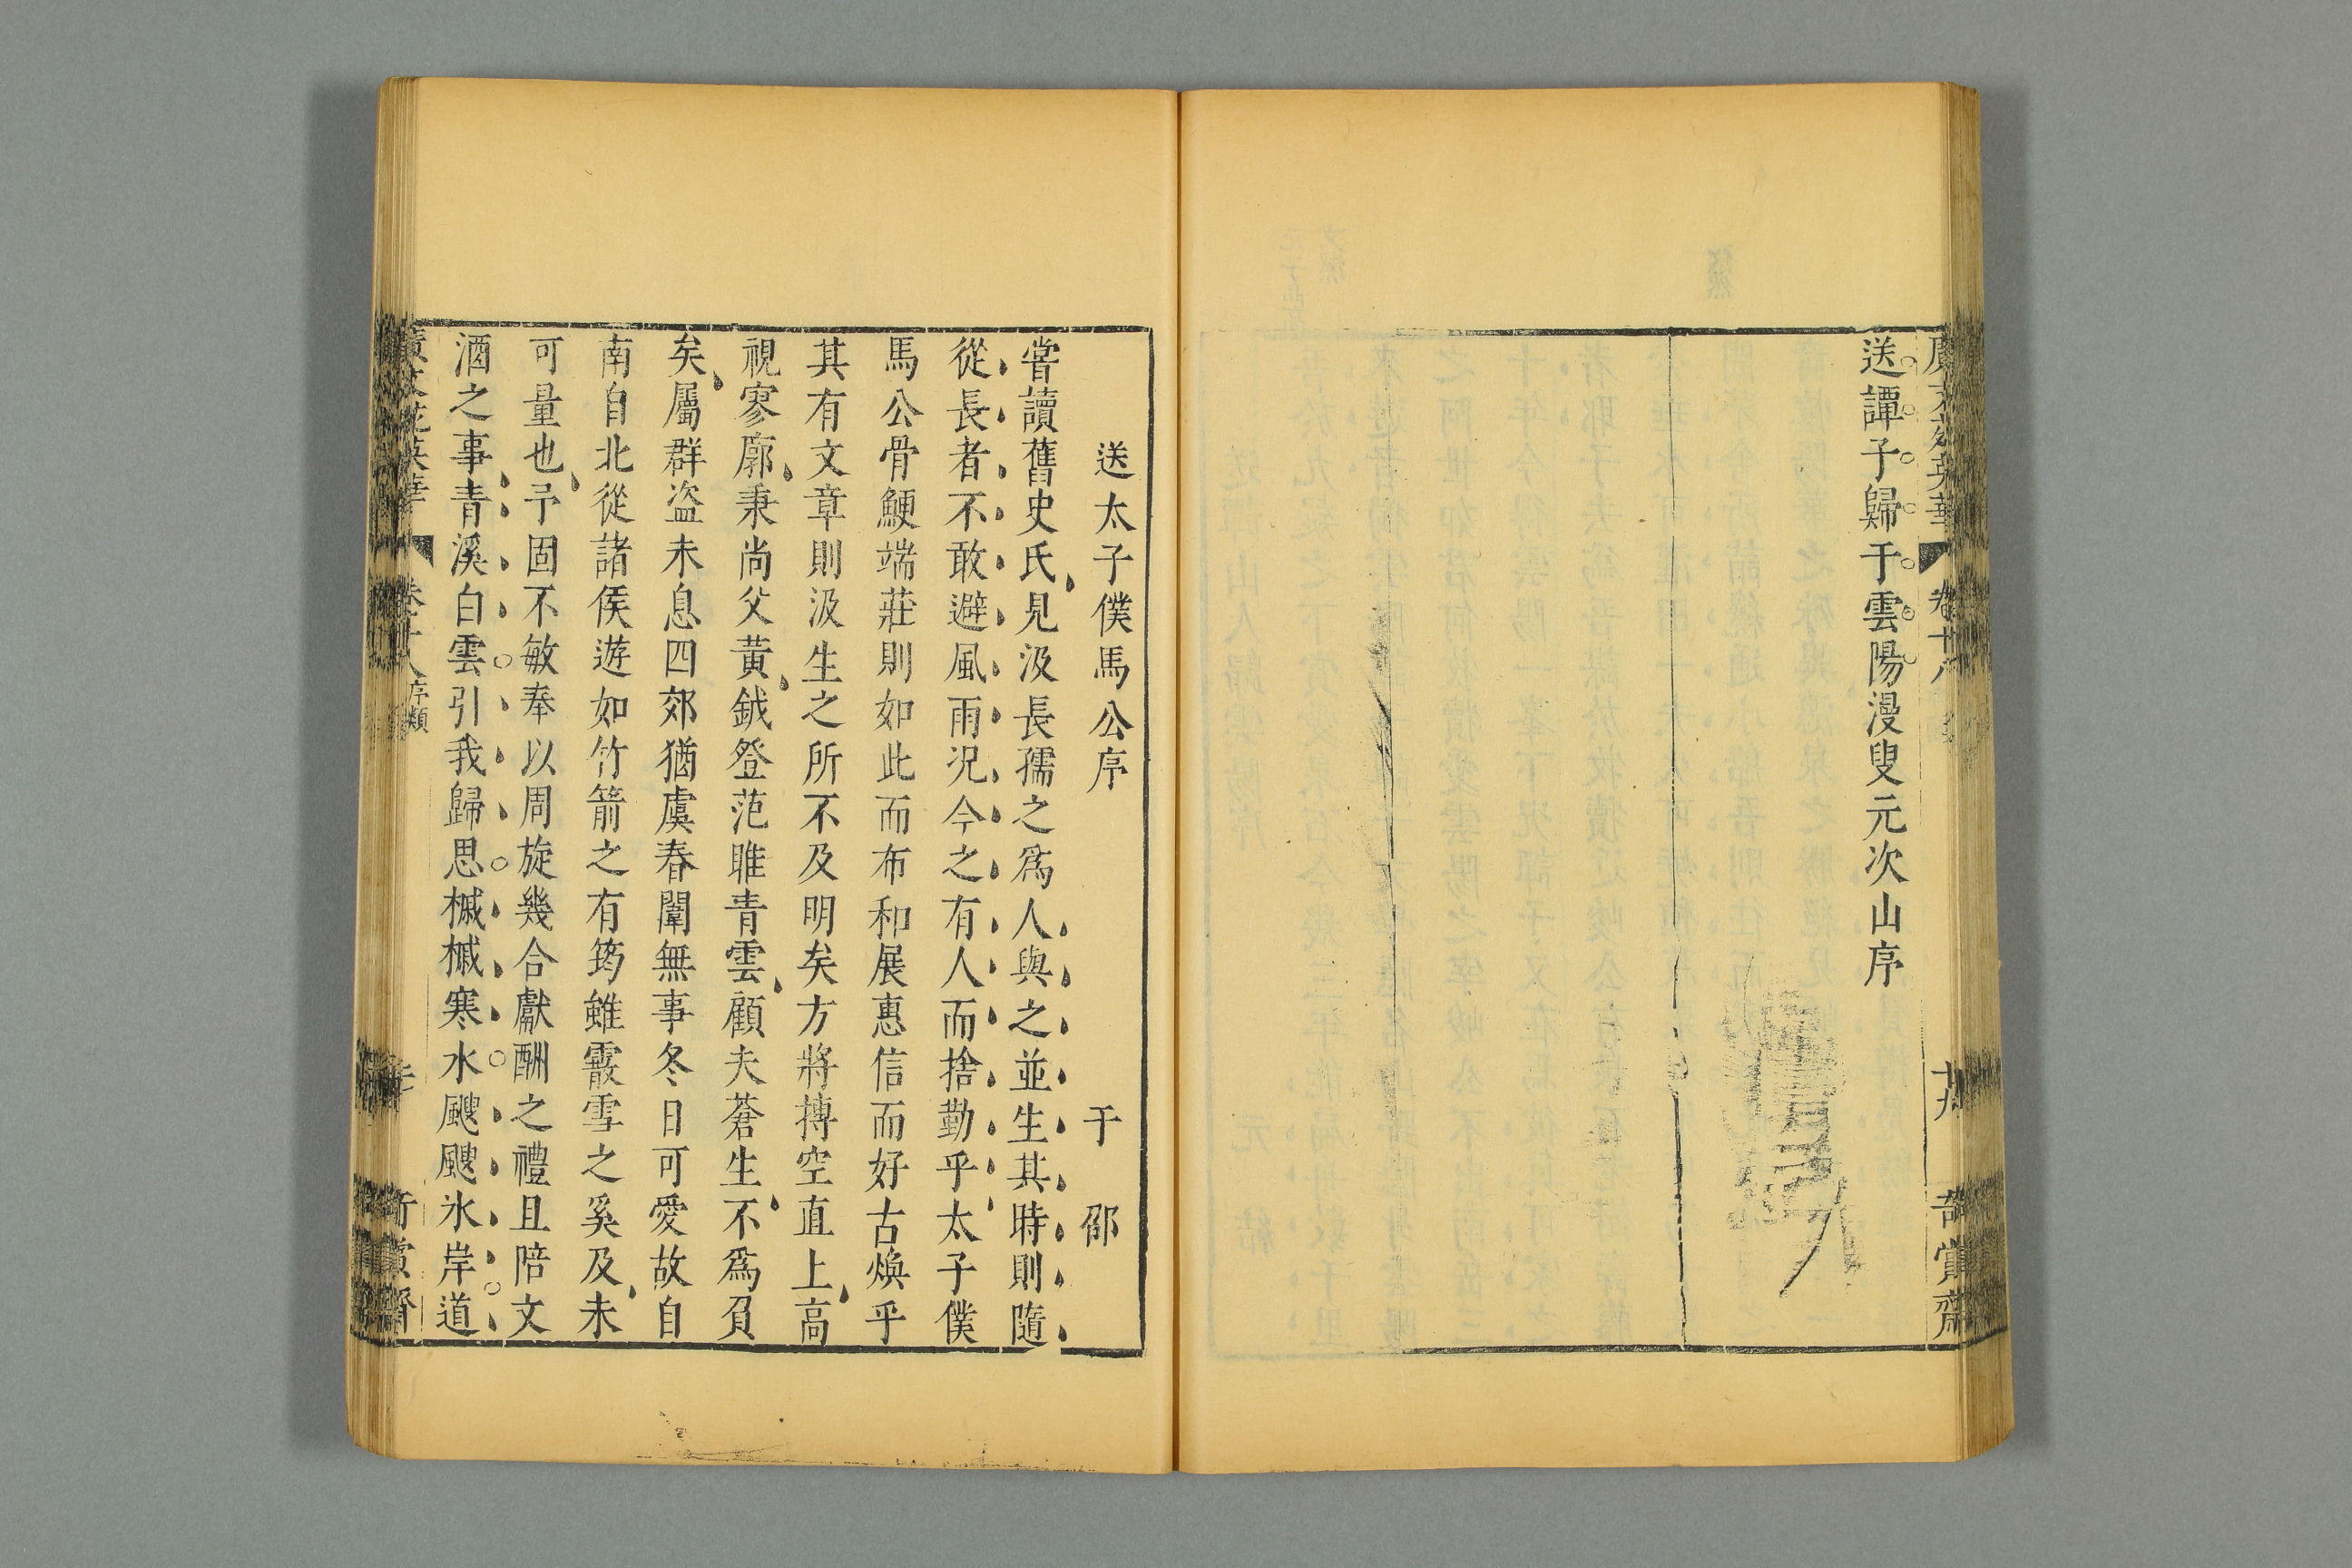 廣文苑英華 卷十八 奇賞齋
送譚子歸于雲陽漫叟元次山序
送太子僕馬公序 于邵
嘗讀舊史氏見汲長孺之爲人與之並生其時則隨
從長者不敢避風雨况今之有人而捨勤乎太子僕
馬公骨鯁端莊則如此而布和展惠信而好古煥乎
其有文章則汲生之所不及明矣方將摶空直上高
視寥廓秉尚父黄鉞登范雎青雲顧夫蒼生不爲負
矣屬群盗未息四郊猶虞春闈無事冬日可愛故自
南自北從諸侯遊如竹箭之有筠雖霰雪之奚及未
可量也予固不敏奉以周旋幾合獻酬之禮且陪文
酒之事青溪白雲引我歸思槭槭寒水颼颼氷岸道
廣文苑英華 卷十八 序類 奇賞齋